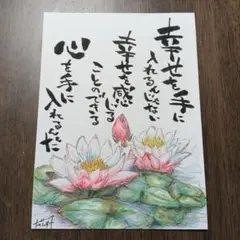 幸せを手に
入れるんじゃない
幸せを感じる
ことのできる
心を手に
入れるんだ